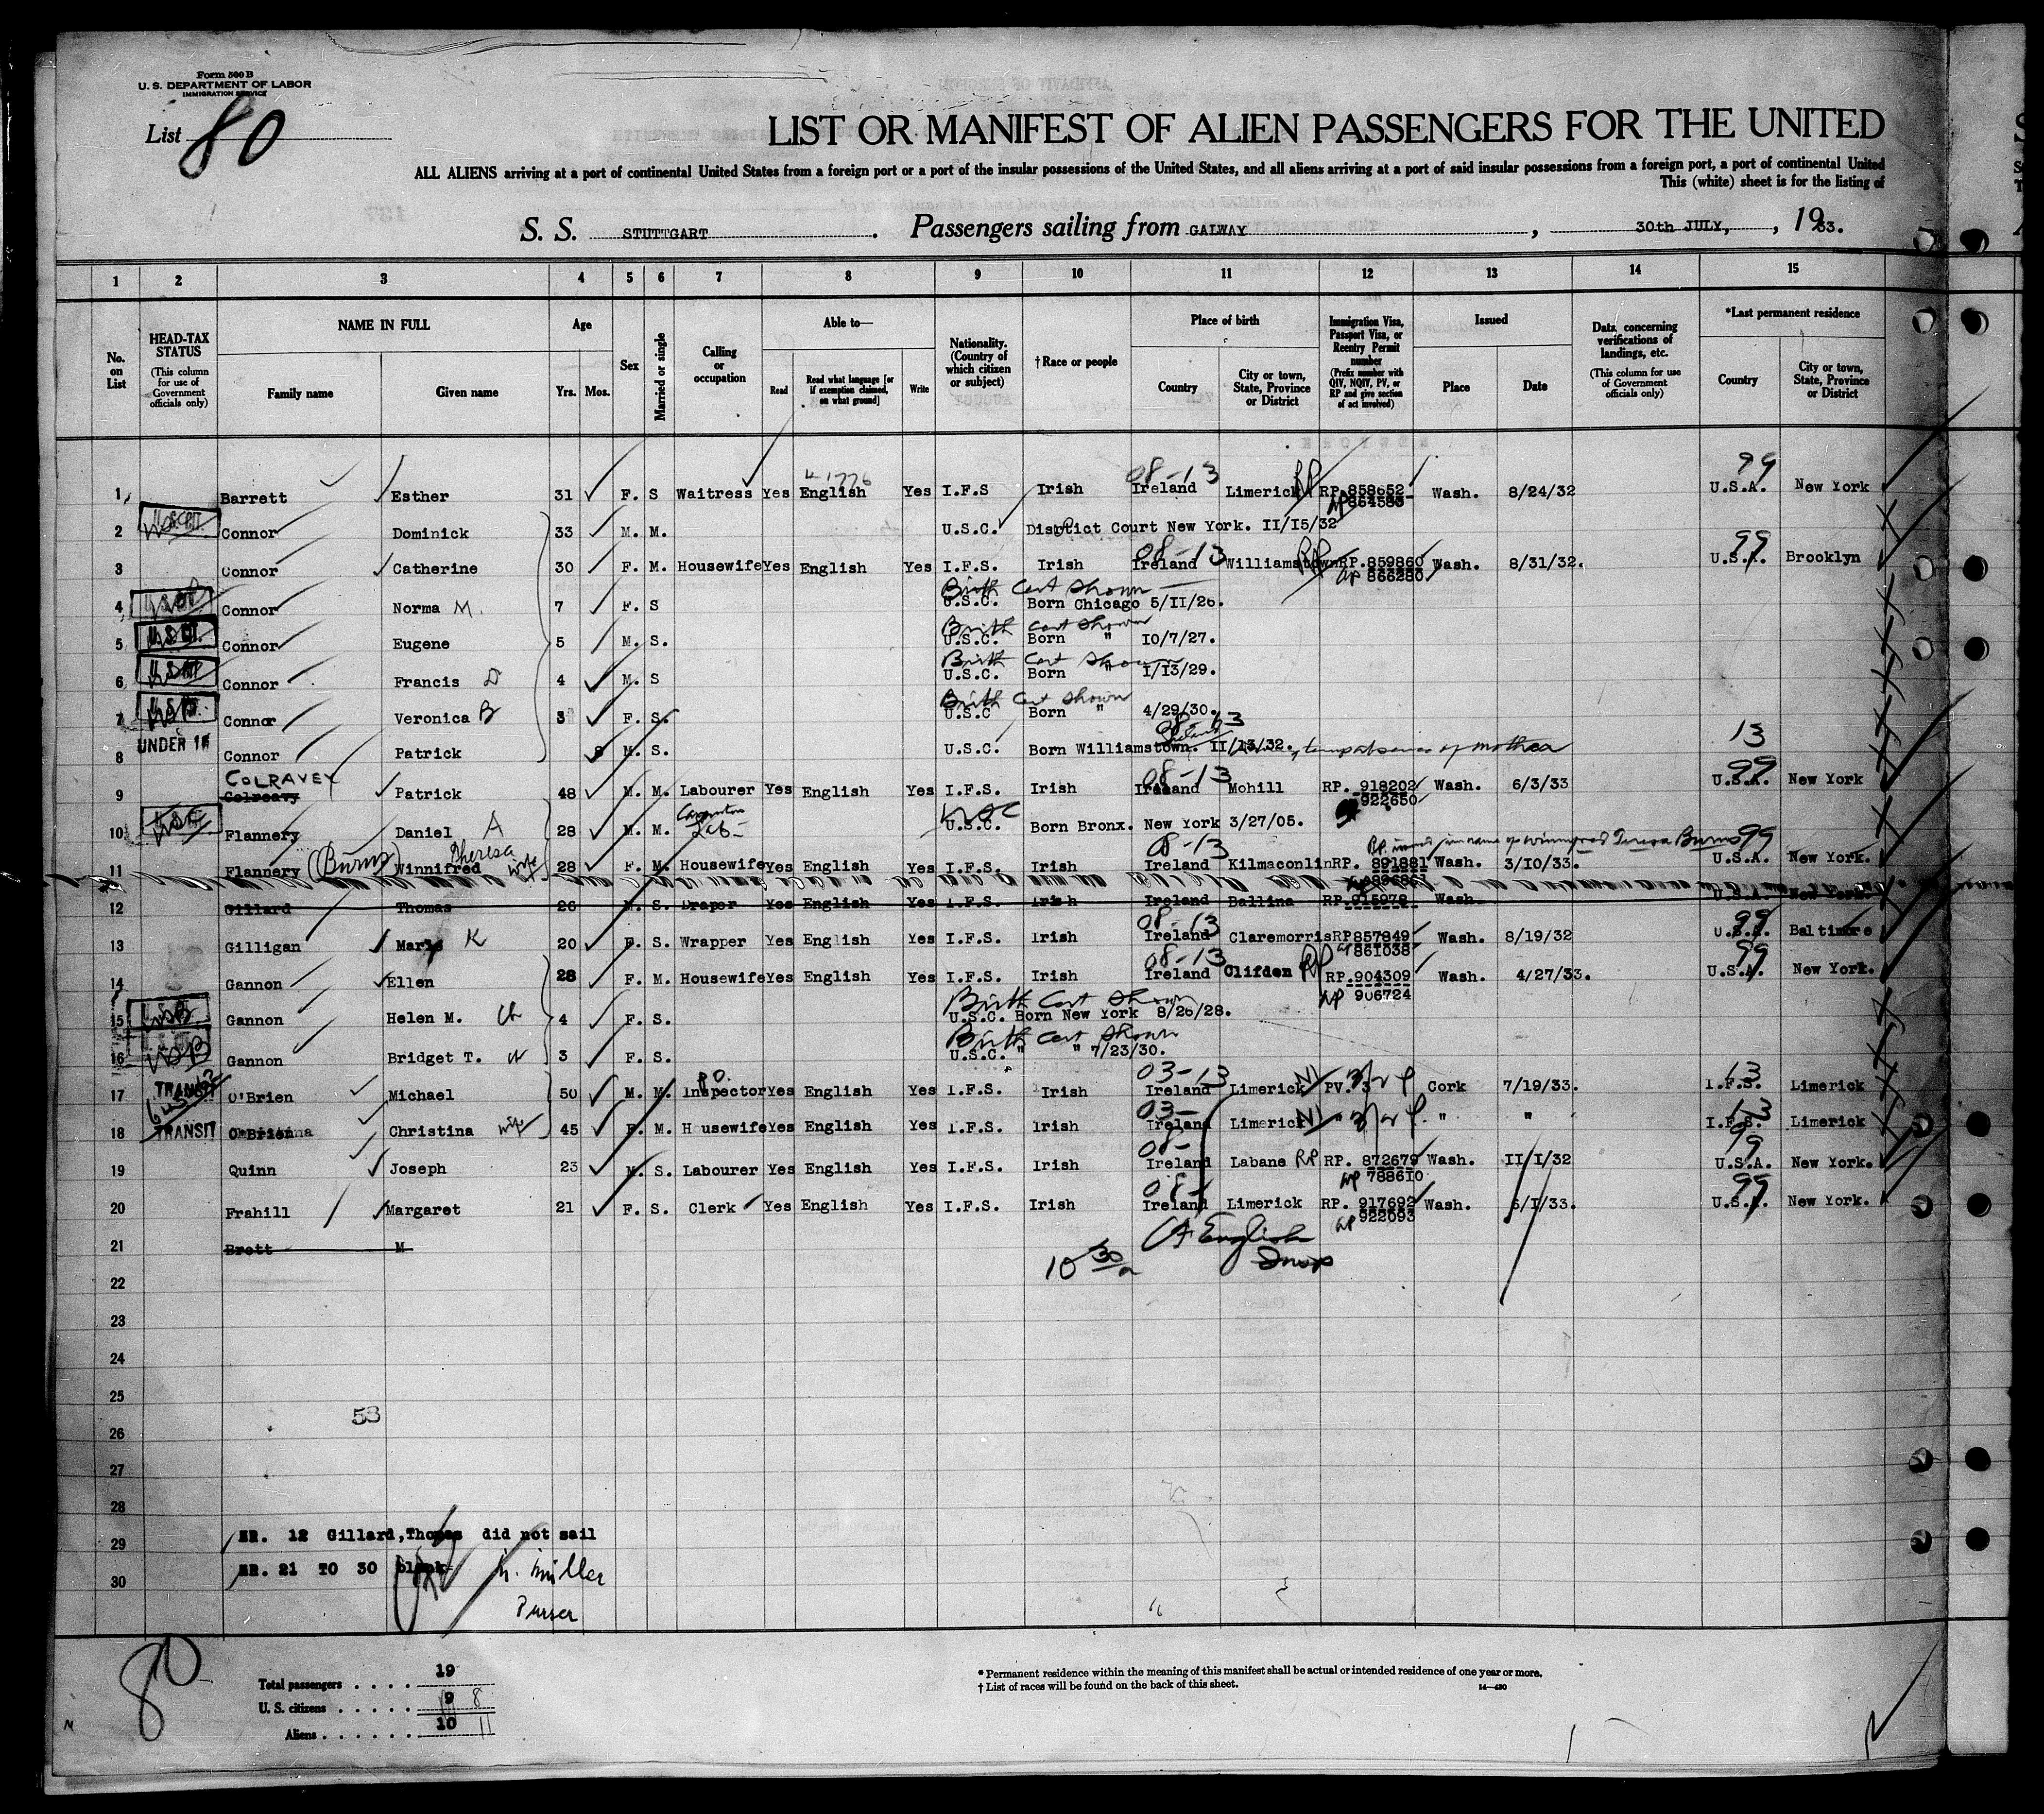 Form 500 B
U. S. DEPARTMENT OF LABOR
IMMIGRATION SERVICE
List 80
LIST OR MANIFEST OF ALIEN PASSENGERS FOR THE UNITED
ALL ALIENS arriving at a port of continental United States from a foreign port or a port of the insular possessions of the United States, and all aliens arriving at a port of said insular possessions from a foreign port, a port of continental United
This (white) sheet is for the listing of
S. S. STUTTGART . Passengers sailing from GALWAY , 30th JULY, , 1933.
1 2 3 4 5 6 7 8 9 10 11 12 13 14 15
No. on List
HEAD-TAX STATUS (This column for use of Government officials only)
NAME IN FULL Family name Given name
Age Yrs. Mos.
Sex
Married or single
Calling or occupation
Able to— Read Read what language [or if exemption claimed, on what ground] Write
Nationality. (Country of which citizen or subject)
† Race or people
Place of birth Country City or town, State, Province or District
Immigration Visa, Passport Visa, or Reentry Permit number (Prefix number with QIV, NQIV, PV, or RP and give section of act involved)
Issued Place Date
Data concerning verifications of landings, etc. (This column for use of Government officials only)
*Last permanent residence Country City or town, State, Province or District
08-13 99
1 Barrett Esther 31 F. S Waitress Yes English Yes I.F.S Irish Ireland Limerick RP RP.858652 Wash. 8/24/32 U.S.A. New York
2 Connor Dominick 33 M. M. U.S.C. District Court New York. II/I5/32
08-13 99
3 Connor Catherine 30 F. M. Housewife Yes English Yes I.F.S. Irish Ireland Williamstown RP.859860 Wash. 8/31/32. U.S.A. Brooklyn
866280
Birth Cert Shown
4 Connor Norma M. 7 F. S U.S.C. Born Chicago 5/II/26.
Birth Cert Shown
5 Connor Eugene 5 M. S. U.S.C. Born " I0/7/27.
Birth Cert Shown
6 Connor Francis D 4 M. S U.S.C. Born " I/I3/29.
Birth Cert Shown
7 Connor Veronica B 3 F. S. U.S.C Born " 4/29/30.
UNDER 16
8 Connor Patrick 8 M. S. U.S.C. Born Williamstown. II/I3/32. 13
COLRAVEY 08-13 99
9 Colreavy Patrick 48 M. M. Labourer Yes English Yes I.F.S. Irish Ireland Mohill RP. 918202 Wash. 6/3/33 U.S.A. New York
922650
10 Flannery Daniel A 28 M. M. U.S.C. Born Bronx. New York 3/27/05.
08-13 99
11 Flannery (Burns) Winnifred Theresa wife 28 F. M. Housewife Yes English Yes I.F.S. Irish Ireland Kilmaconlin RP. 891881 Wash. 3/10/33. U.S.A. New York.
12 Gillard Thomas 26 M. S. Draper Yes English Yes I.F.S. Irish Ireland Ballina RP.915978 Wash. U.S.A. New York.
08-13 99
13 Gilligan K 20 F. S. Wrapper Yes English Yes I.F.S. Irish Ireland Claremorris RP857849 Wash. 8/19/32 U.S.A. Baltimore
861038
08-13 99
14 Gannon Ellen 28 F. M. Housewife Yes English Yes I.F.S. Irish Ireland Clifden RP RP.904309 Wash. 4/27/33. U.S.A. New York.
906724
Birth Cert Shown
15 Gannon Helen M. ch 4 F. S. U.S.C. Born New York 8/26/28.
Birth Cert Shown
16 Gannon Bridget T. 3 F. S. U.S.C. " " 7/23/30.
03-13 13
17 TRANSIT O'Brien Michael 50 M. M. Inspector Yes English Yes I.F.S. Irish Ireland Limerick PV. 3 Cork 7/19/33. I.F.S. Limerick
03- 13
18 TRANSIT O'Brien Christina wife 45 F. M. Housewife Yes English Yes I.F.S. Irish Ireland Limerick " " " I.F.S. Limerick
08- 99
19 Quinn Joseph 23 M. S. Labourer Yes English Yes I.F.S. Irish Ireland Labane RP RP. 872679 Wash. II/I/32 U.S.A. New York.
788610
99
20 Frahill Margaret 21 F. S. Clerk Yes English Yes I.F.S. Irish Ireland Limerick RP. 917692 Wash. 6/I/33. U.S.A. New York.
922093
21 Brett M
10 30 English
22
23
24
25
53
26
27
28
29 NR. 12 Gillard,Thomas did not sail
NR. 21 TO 30 blank
30
Müller
Purser
80
Total passengers . . . . 19
U. S. citizens . . . . . 9 8
Aliens . . . . . . 10 11
* Permanent residence within the meaning of this manifest shall be actual or intended residence of one year or more.
† List of races will be found on the back of this sheet.
14—430